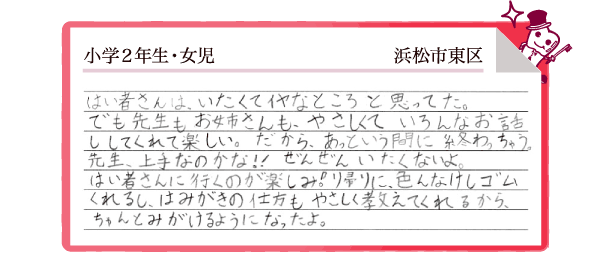 小学2年生・女児 浜松市東区
はい者さんは、いたくてイヤなところと思ってた。
でも先生もお姉さんも、やさしくていろんなお話
ししてくれて楽しい。だから、あっという間に終わっちゃう。
先生、上手なのかな!! ぜんぜんいたくないよ。
はい者さんに行くのが楽しみ!帰りに、色んなけしゴム
くれるし、はみがきの仕方もやさしく教えてくれるから、
ちゃんとみがけるようになったよ。